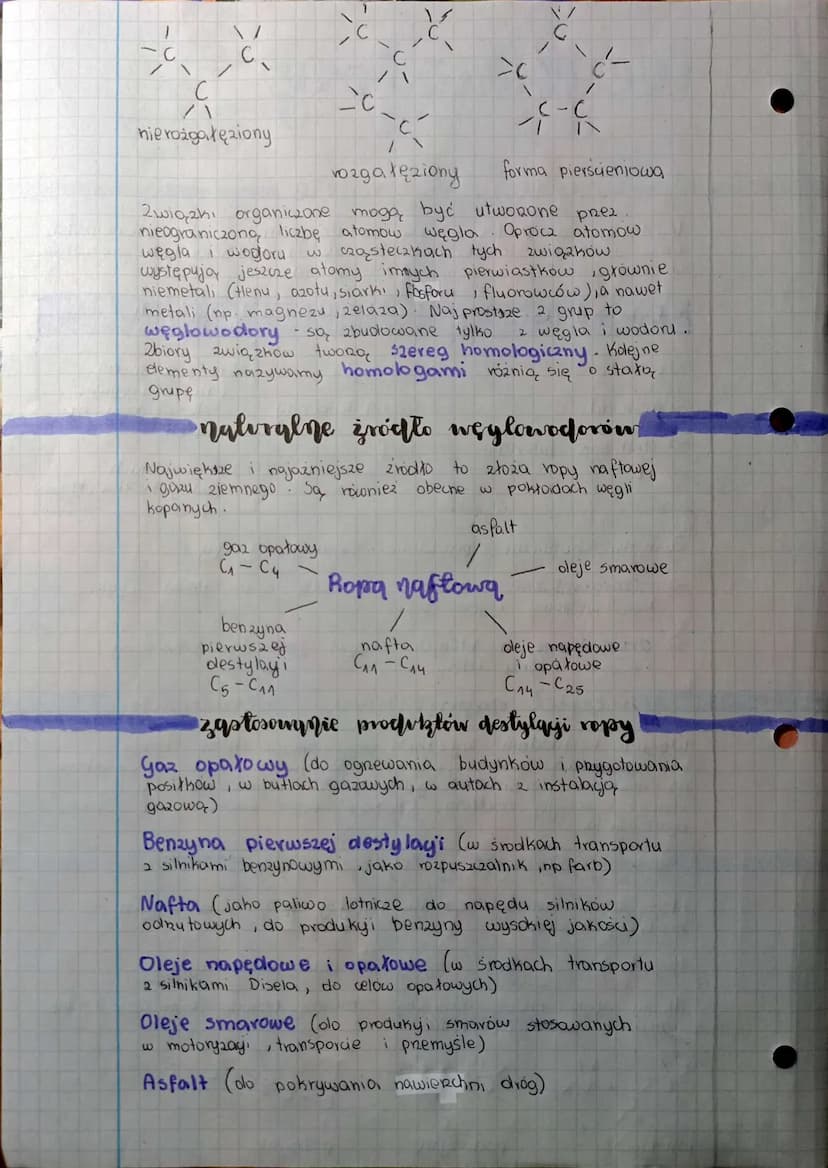 C C C
nierozgałęziony
C C C C C
rozgałęziony
C C C C - C
forma pierścieniowa
Związki organiczone mogą być utworzone przez
nieograniczoną liczbę atomów węgla. Oprócz atomów
węgla i wodoru w cząsteczkach tych związków
występują jeszcze atomy innych pierwiastków, głównie
niemetali (tlenu, azotu, siarki, fosforu, fluorowców), a nawet
metali (np. magnezu, żelaza). Najprostsze z grup to
węglowodory - są zbudowane tylko z węgla i wodoru.
Zbiory związków tworzą szereg homologiczny. Kolejne
elementy nazywamy homologami różnią się o stałą
grupę
naturalne źródło węglowodorów
Największe i najażniejsze źródło to złoża ropy naftowej
i gazu ziemnego. Są również obecne w pokładach węgli
kopanych.
asfalt
gaz opałowy
C1 - C4
oleje smarowe
Ropa naftowa
benzyna
pierwszej
destylacji
C5 - C11
nafta
C11 - C14
oleje napędowe
i opałowe
C14 - C25
zastosowanie produktów destylacji ropy
Gaz opałowy (do ogrzewania budynków i przygotowania
posiłków, w butlach gazowych, w autach z instalacją
gazową)
Benzyna pierwszej destylacji (w środkach transportu
z silnikami benzynowymi, jako rozpuszczalnik, np farb)
Nafta (jako paliwo lotnicze do napędu silników
odrzutowych, do produkcji benzyny wysokiej jakości)
Oleje napędowe i opałowe (w środkach transportu
z silnikami Disela, do celów opałowych)
Oleje smarowe (do produkcji smarów stosowanych
w motoryzacji, transporcie i przemyśle)
Asfalt (do pokrywania nawierzchni dróg)